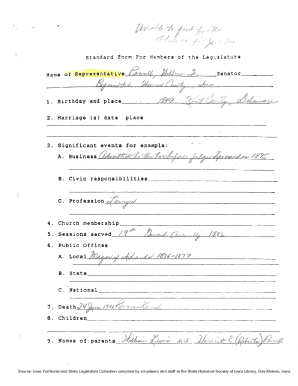 Unable to find further
Standard Form For Members of the Legislature
Name of Representative Powell, William L. Senator
Represented County, Iowa
1. Birthday and place 1849 Kent County, Delaware
2. Marriage (s) date place
3. Significant events for example:
A. Business Admitted to the bar before Judge in 1875
B. Civic responsibilities
C. Profession Lawyer
4. Church membership
5. Sessions served 19th General Assembly 1882
6. Public Offices
A. Local Mayor of 1876-1877
B. State
C. National
7. Death 24 June
8. Children
9. Names of parents William and Harriet E. Powell
Source: Iowa Territorial and State Legislators Collection compiled by volunteers and staff at the State Historical Society of Iowa Library, Des Moines, Iowa.